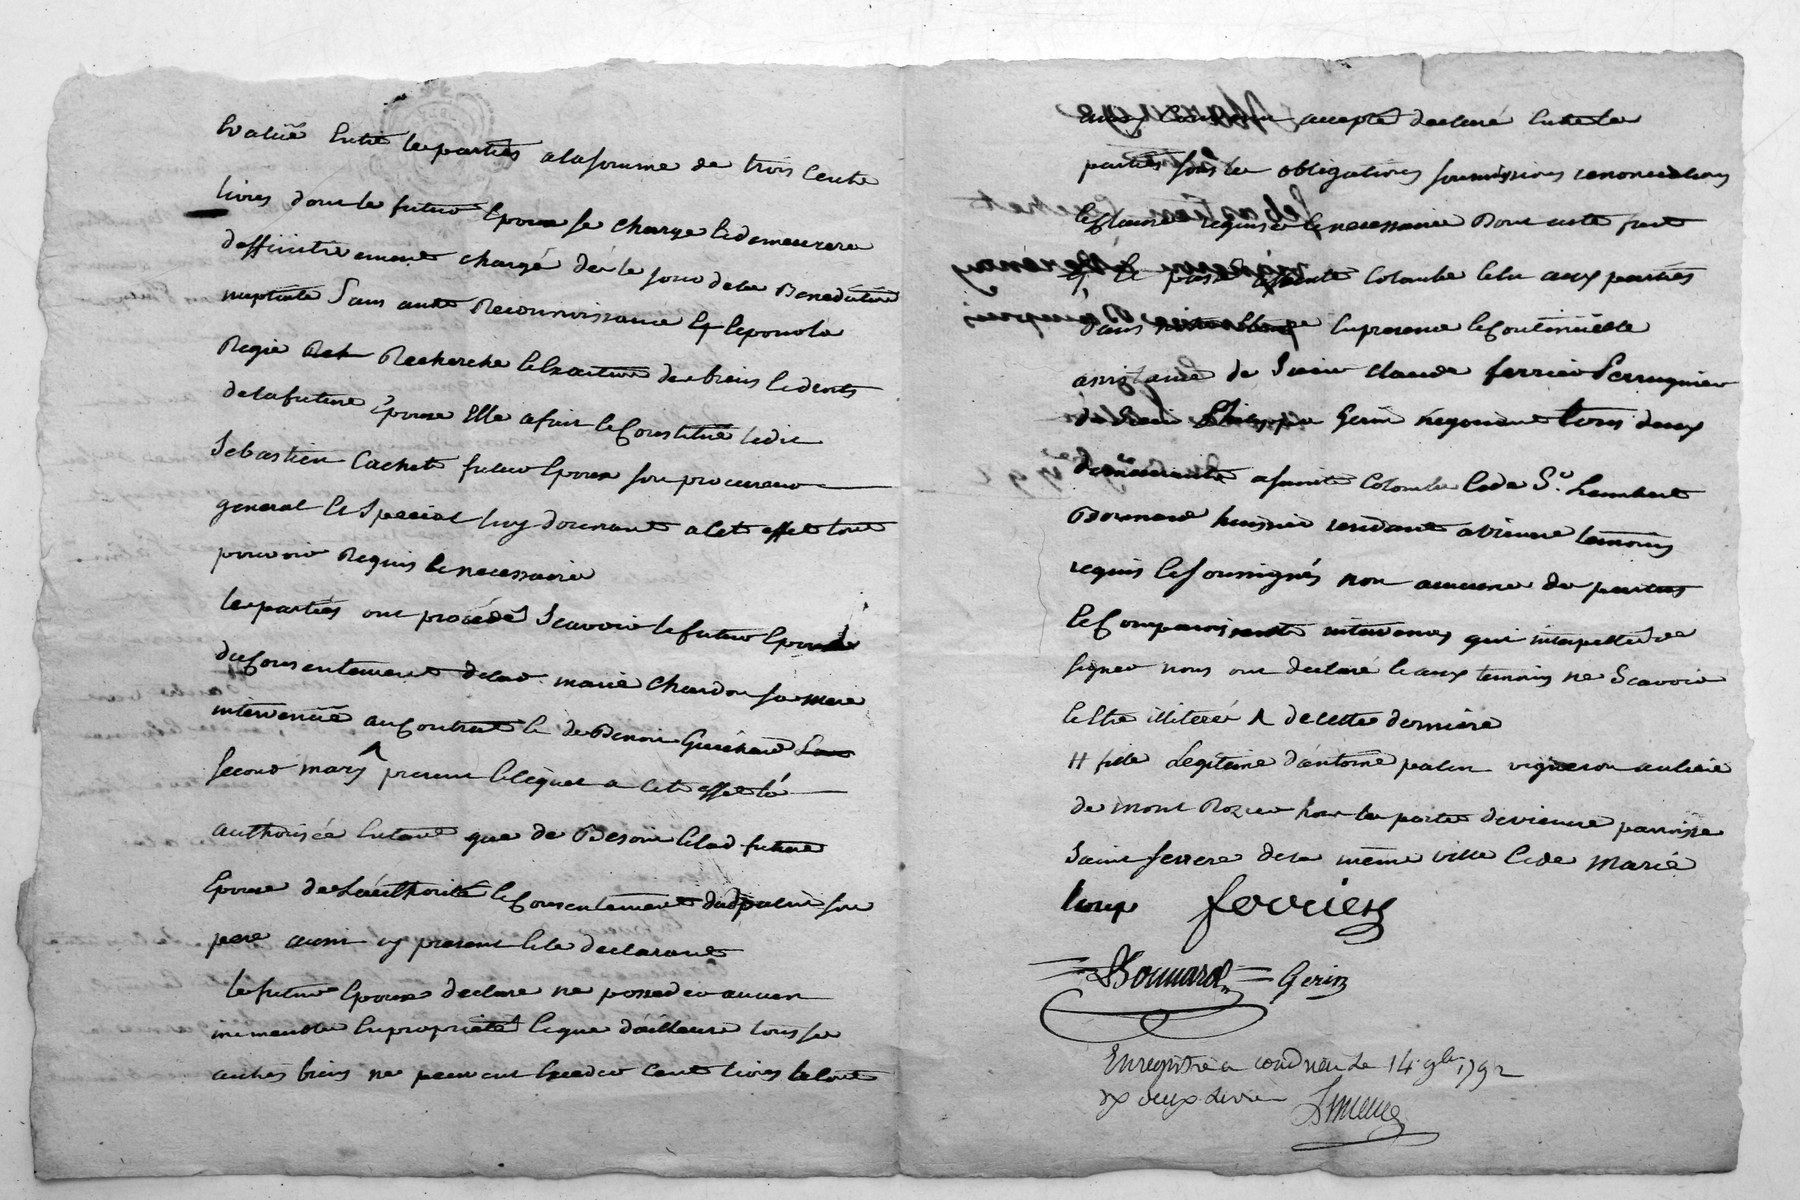 Evalüé Entre les parties a la somme de trois Cents
livres dont le futur Epoux se charge et demeurera
deffinitivement chargé dès le jour de la Benediction
nuptiale Sans autre Reconnoissance Et Lepour la
Regie Recherche et Exaction des biens et droits
de la future Epouse Elle a fait et Constitué ledit
Sebastien Cachet futur Epoux son procureur
general et Special luy donnant a Cet effet tout
pouvoir Requis et necessaire
les parties ont procédé Scavoir le futur Epoux
du Consentement de lad. marie Chardon sa mere
intervenüe au Contrat et de Benoit Guichard
second mary ^ present et Elequel a Cet effet la
authorisée Entant que de Besoin et lad future
Epouse de Lauthorité et Consentement dud palin son
pere aussi cy present et le declarant
le futur Epoux declare ne posseder aucun
immeuble En propriété et que d'ailleurs tous se
autres biens ne peuvent Exceder Cent livres le tout
accepté declaré Entre les
parties sous les obligations soumissions renonciations
et Clauses requises et necessaires Dont acte fait
et passé a sainte Colombe et lu aux parties
dans En presence et Continuelle
assistance de Sieur Claude ferrier Perruquier
du Sieur Philippe Gerin negotiant tous deux
demeurants a sainte Colombe et de Sr. Lambert
Bonnard huissier residant a vienne temoins
requis et soussignés non aucune des parties
et Comparoissants intervenus qui interpellés de
signer nous ont declaré et aux temoins ne Scavoir
et Etre illiteré ^ de cette derniere
H fille Legitime d'antoine palin vigneron au lieu
de mont Rozier hors les portes de vienne parroisse
Saint severe de la même ville et de Marie
loup ferrier
Bonnard Gerin
Enregistré a condrieu le 14 9bre 1792